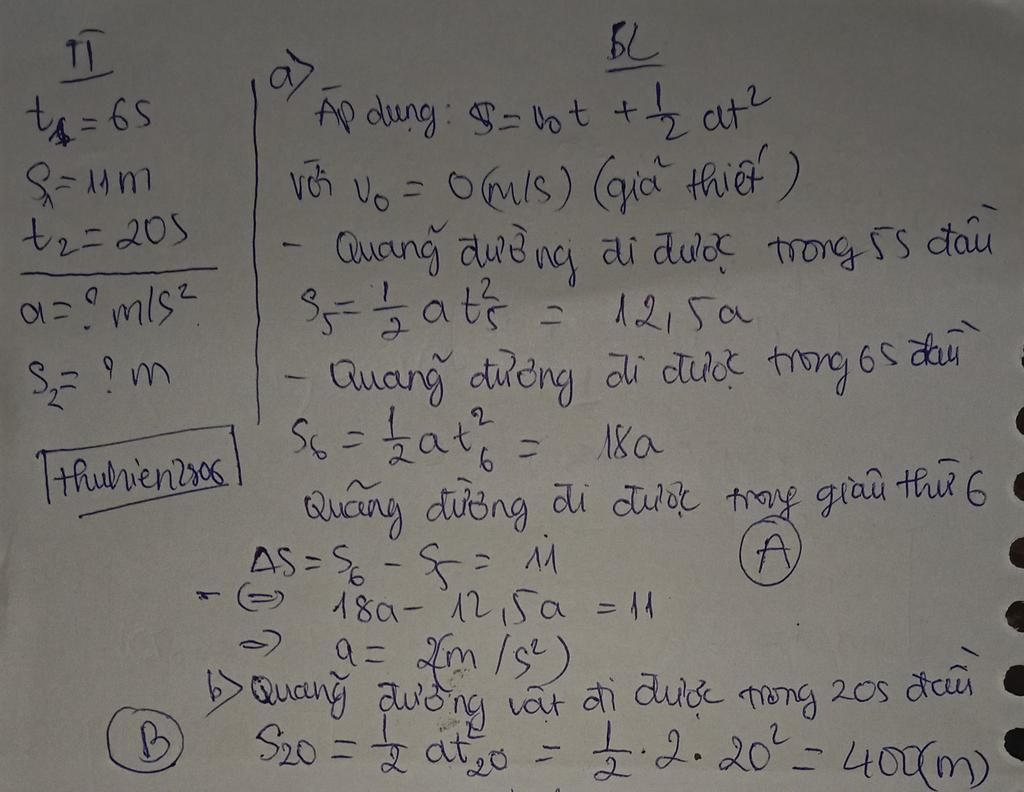 TT
t₁ = 6s
S₁ = 11m
t₂ = 20s
a = ? m/s²
S₂ = ? m
thuhien2806
BL
a>
Áp dụng: S = v₀t + 1/2 at²
với v₀ = 0(m/s) (giả thiết)
- Quãng đường đi được trong 5s đầu
S₅ = 1/2 at₅² = 12,5a
- Quãng đường đi được trong 6s đầu
S₆ = 1/2 at₆² = 18a
Quãng đường đi được trong giây thứ 6
ΔS = S₆ - S₅ = 11
A
- <=> 18a - 12,5a = 11
=> a = 2(m/s²)
b> Quãng đường vật đi được trong 20s đầu
B
S₂₀ = 1/2 at₂₀² = 1/2 . 2 . 20² = 400(m)